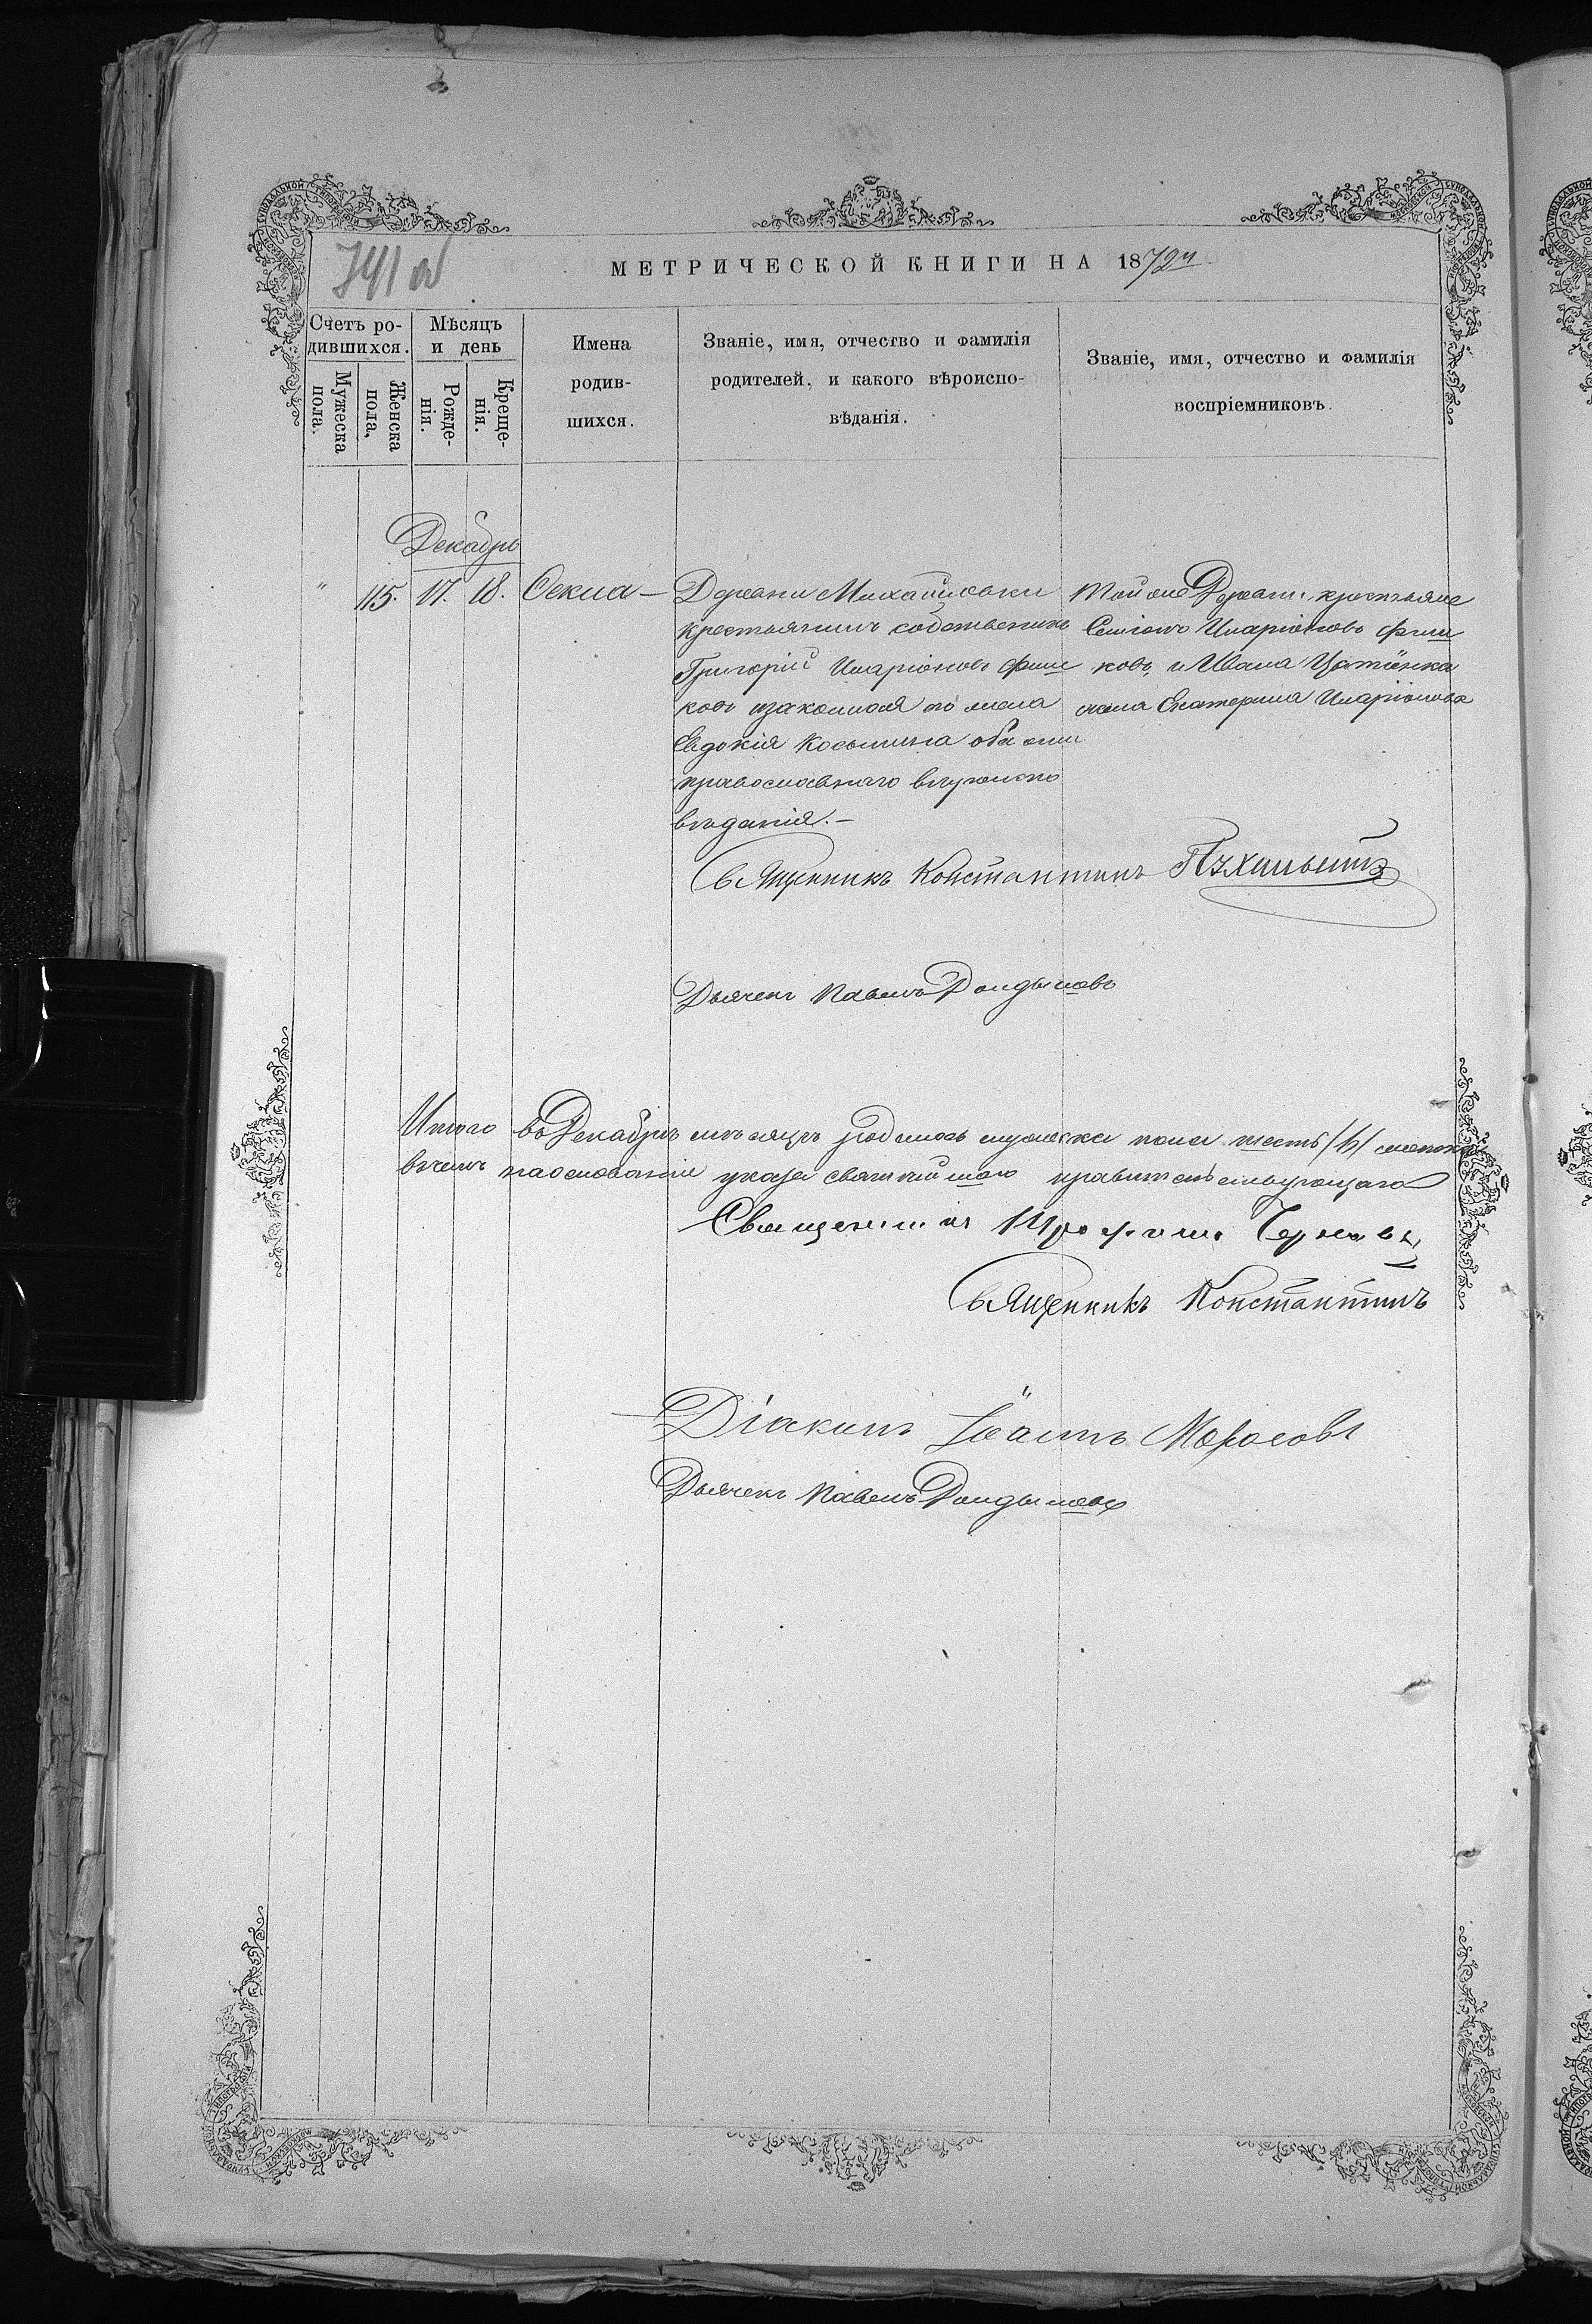 741 об
МЕТРИЧЕСКОЙ КНИГИ НА 1872й
Счетъ ро-
дившихся.
Мужеска
пола.
Женска
пола,
Мѣсяцъ
и день
Рожде-
нія.
Креще-
нія.
Имена
родив-
шихся.
Званіе, имя, отчество и фамилія
родителей, и какого вѣроиспо-
вѣданія.
Званіе, имя, отчество и фамилія
воспріемниковъ.
Декабрь
" 115. 17. 18. Секла —
Деревни Михайловки
крестьянинъ собственикъ
Григорій Иларіоновъ Фили
ковъ изаконная его жена
Евдокія Косьмина оба они
православнаго вѣроиспо
вѣданія. —
Той же Деревни крестьяне
Семіонъ Иларіоновъ Фили
ковъ, и Ивана
жена Екатерина Иларіонова
Священникъ Константинъ
Дьячекъ Павелъ
Итого въ Декабрѣ мѣсяцѣ родилось мужеска пола шесть /6/ женска
вчемъ наоснованіи указа святѣйшаго правительствующаго
Священникъ
Священникъ Константинъ
Діаконъ Іоаннъ Моросовъ
Дьячекъ Павелъ